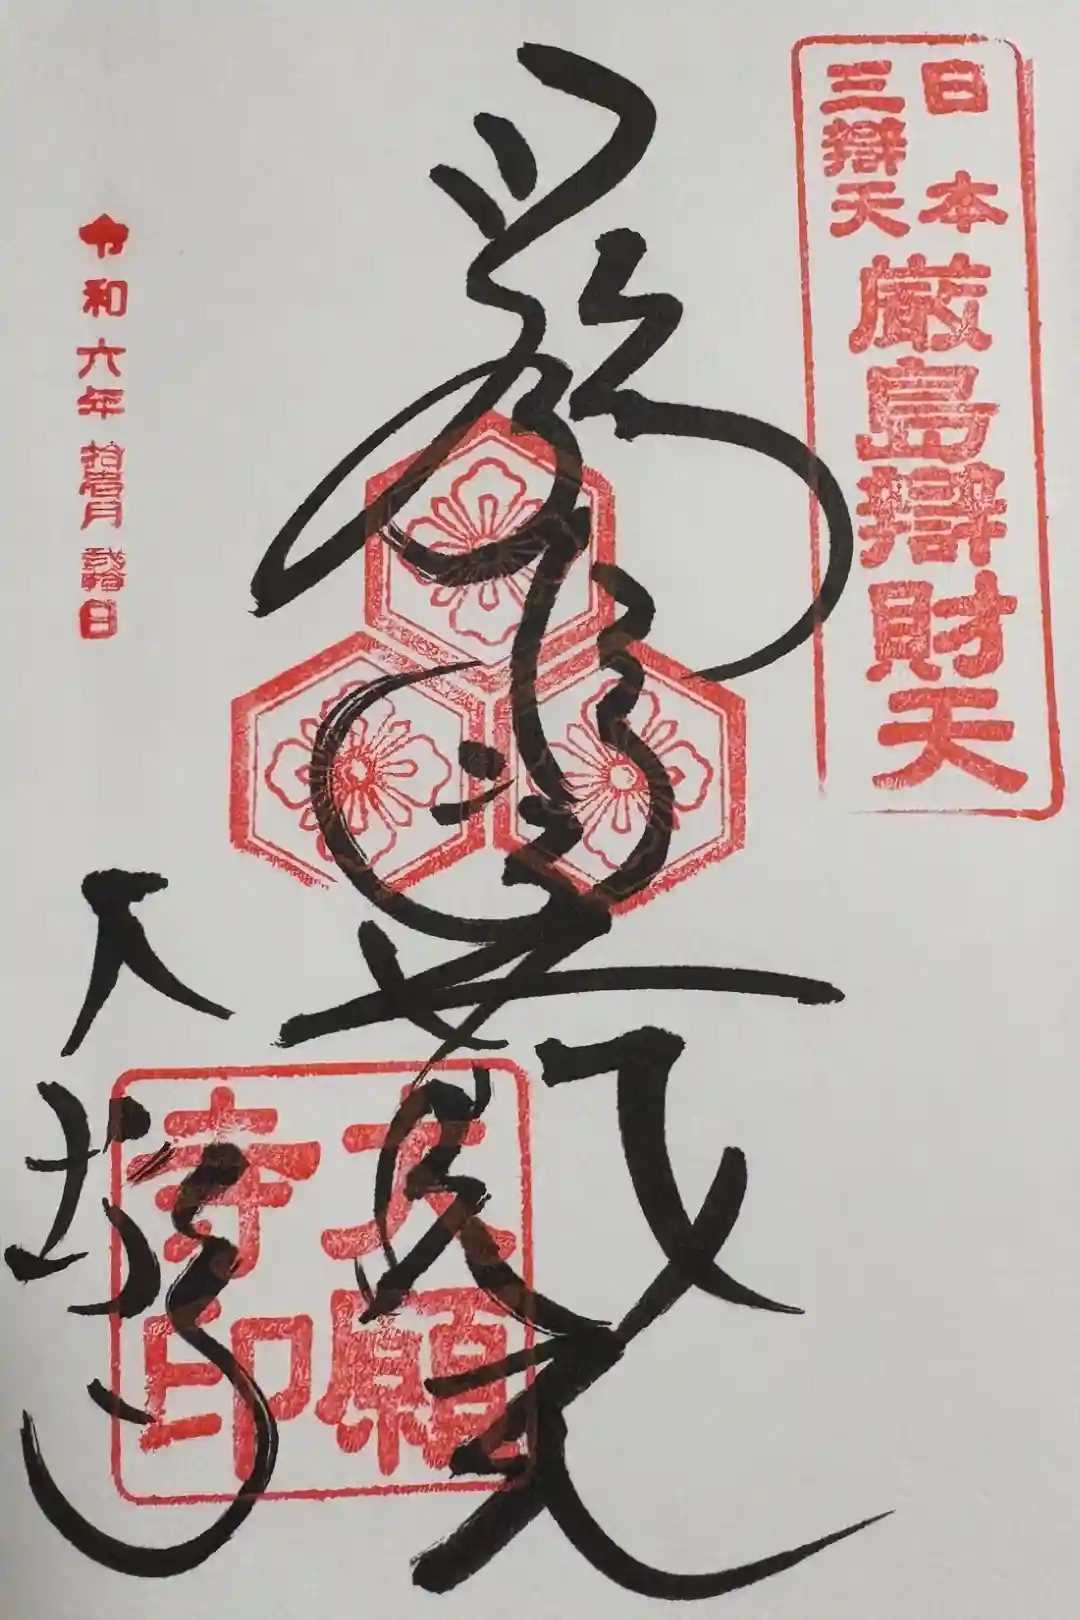 日本
三辯天
厳島辯財天
厳島辯
財天
大願
寺印
大願寺
令和六年拾壱月弐拾日